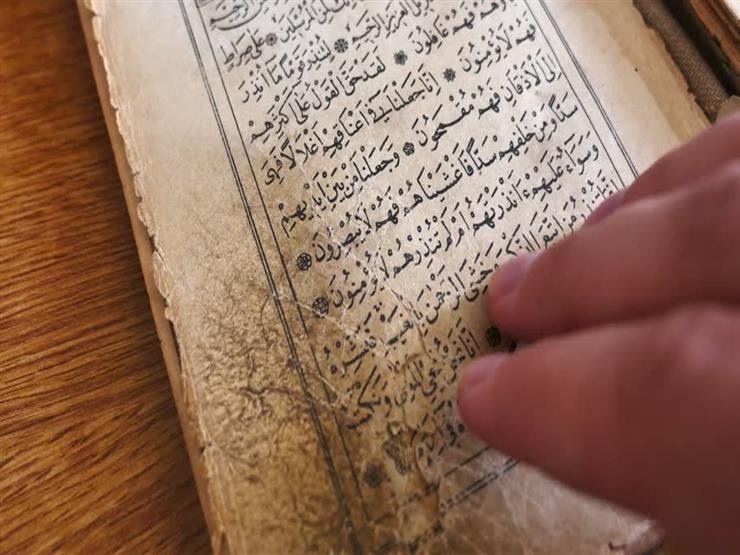 لمن المرسلين ۞ على صراط
العزيز الرحيم ۞ لتنذر قوما ما انذر
فهم غافلون ۞ لقد حق القول على اكثرهم
فهم لا يؤمنون ۞ انا جعلنا في اعناقهم اغلالا فهى
الى الاذقان فهم مقمحون ۞ وجعلنا من بين ايديهم
سدا ومن خلفهم سدا فاغشيناهم فهم لا يبصرون ۞
وسواء عليهم ءانذرتهم ام لم تنذرهم لا يؤمنون ۞
تنذر من اتبع الذكر وخشى الرحمن بالغيب فبشره
۞ انا نحن نحى الموتى ونكتب